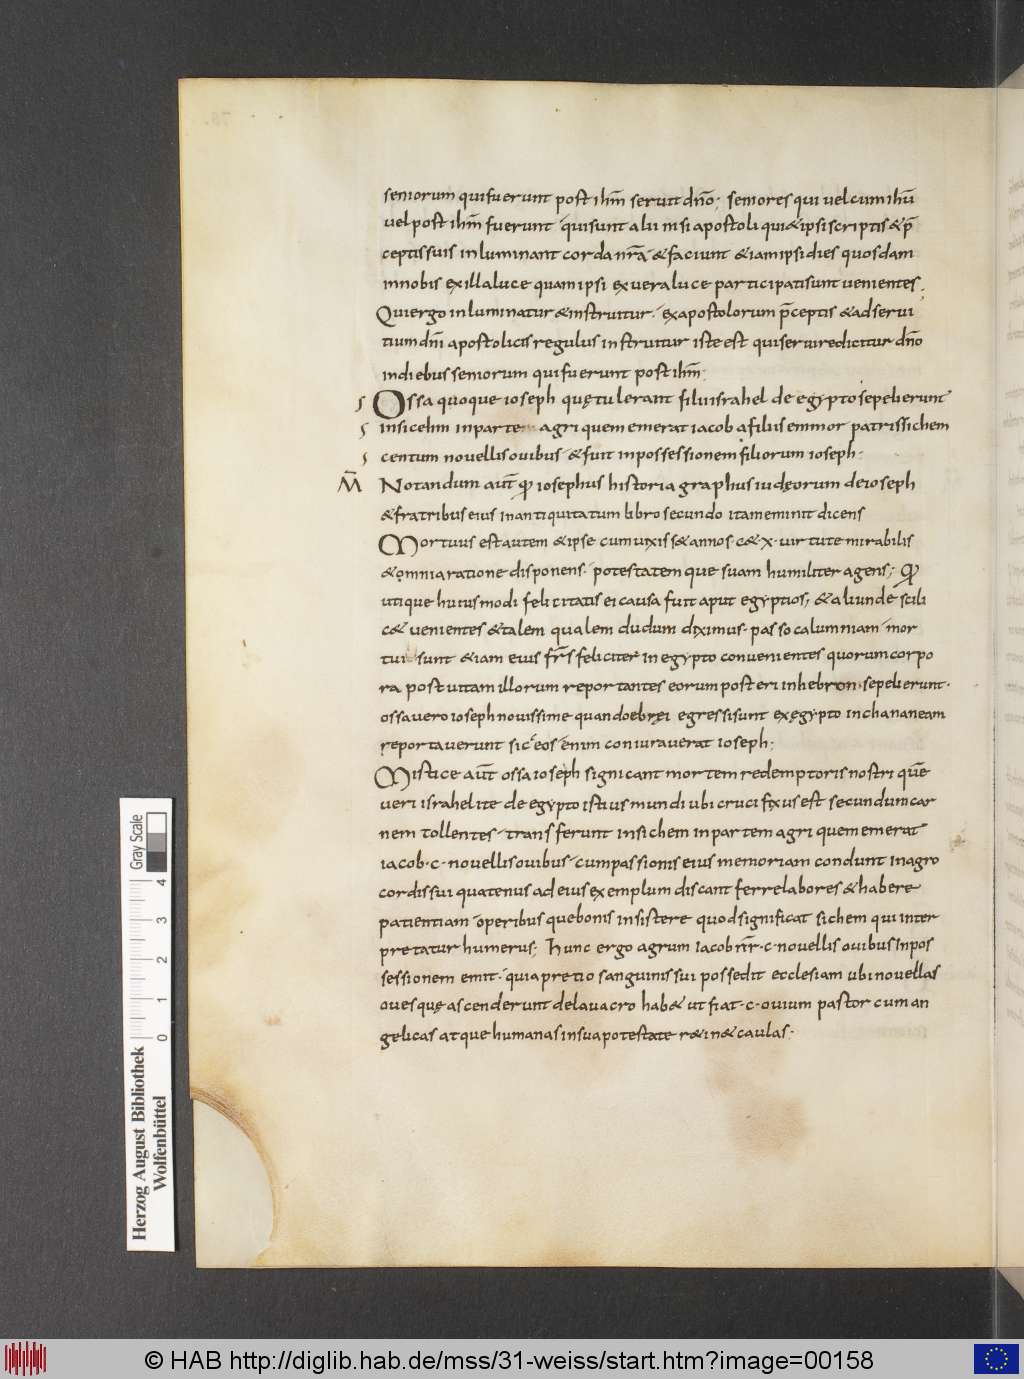 seniorum qui fuerunt post ihm̄ seruit dn̄o; seniores qui uel cum ihū
uel post ihm̄ fuerunt qui sunt alii nisi apostoli qui & ipsi scriptis & p̄
ceptis suis inluminant corda nr̄a & faciunt & iam ipsi dies quosdam
in nobis ex illa luce quam ipsi ex uera luce participati sunt uenientes;
Qui ergo inluminatur & instruitur. ex apostolorum p̄ceptis & ad serui
tium dn̄i apostolicis regulus instruitur iste est qui seruire dicitur dn̄o
in diebus seniorum qui fuerunt post ihm̄;
s Ossa quoque ioseph quę tulerant filii israhel de egypto sepelierunt
s in sicehm in parte agri quem emerat iacob a filiis emmor patris sichem
s centum nouellis ouibus & fuit in possessionem filiorum ioseph.
M̄ Notandum aut̄ ꝙ iosephus historiagraphus iudęorum de ioseph
& fratribus eius in antiquitatum libro secundo ita meminit dicens
Mortuus est autem & ipse cum uixiss& annos. c& x. uirtute mirabilis
& omnia ratione disponens. potestatem que suam humiliter agens; ꝙ
utique huius modi felicitatis ei causa fuit aput egyptios; & aliunde scili
c& uenientes & talem qualem dudum diximus. passo calumniam mor
tui sunt & iam eius fr̄s feliciter in egypto conuenientes quorum corpo
ra post uitam illorum reportantes eorum posteri in hebron. sepelierunt.
ossa uero ioseph nouissime quando ebręi egressi sunt ex ęgypto in chananeam
reportauerunt sic eos enim coniurauerat ioseph;
Mistice aut̄ ossa ioseph signicant mortem redemptoris nostri quē
ueri israhelite de egypto istius mundi ubi crucifixus est secundum car
nem tollentes transferunt in sichem in partem agri quem emerat
iacob. c. nouellis ouibus cum passionis eius memoriam condunt in agro
cordis sui quatenus ad eius exemplum discant ferre labores & habere
patientiam operibus que bonis insistere quod significat sichem qui inter
pretatur humerus; Hunc ergo agrum iacob nr̄. c. nouellis ouibus in pos
sessionem emit. quia pretio sanguinis sui possedit ecclesiam ubi nouellas
oues quę ascenderunt de lauacro hab& ut fiat. c. ouium pastor cum an
gelicas atque humanas in sua potestate r&in& caulas.
Gray Scale
4 3 2 1 0
Herzog August Bibliothek
Wolfenbüttel
© HAB http://diglib.hab.de/mss/31-weiss/start.htm?image=00158